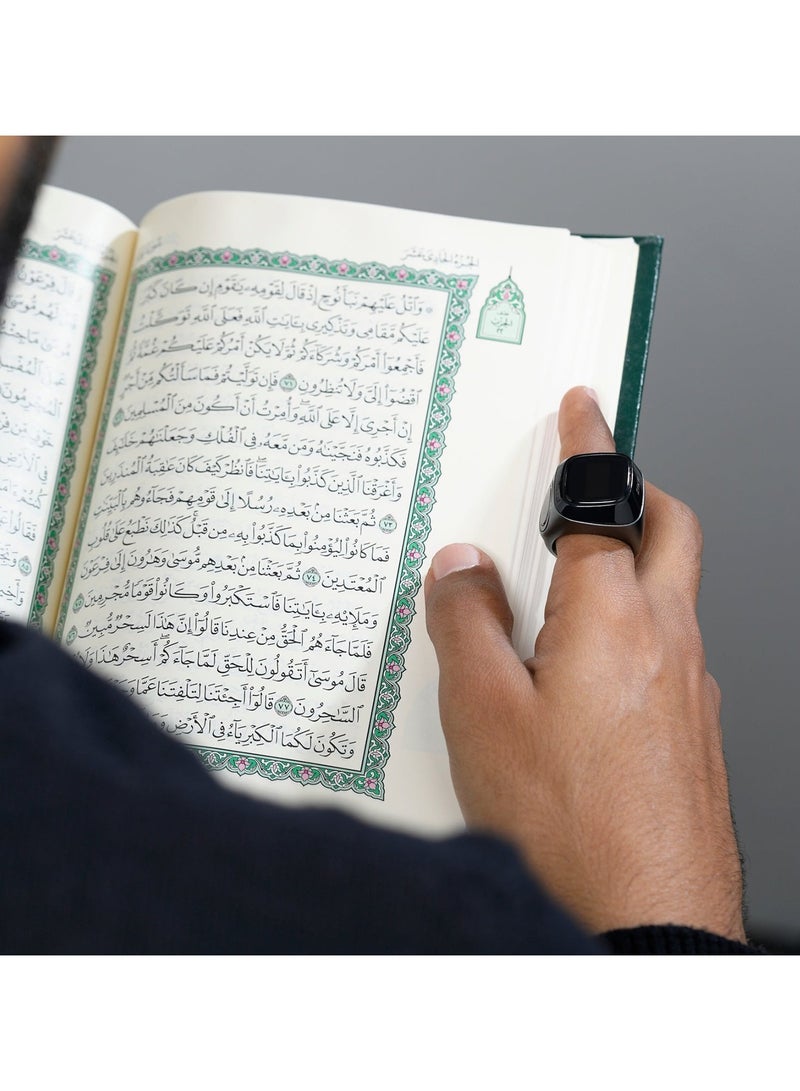 الجُزْءُ الحَادِي عَشَرَ
۞ وَٱتْلُ عَلَيْهِمْ نَبَأَ نُوحٍ إِذْ قَالَ لِقَوْمِهِۦ يَٰقَوْمِ إِن كَانَ كَبُرَ
عَلَيْكُم مَّقَامِي وَتَذْكِيرِي بِـَٔايَٰتِ ٱللَّهِ فَعَلَى ٱللَّهِ تَوَكَّلْتُ
فَأَجْمِعُوٓا۟ أَمْرَكُمْ وَشُرَكَآءَكُمْ ثُمَّ لَا يَكُنْ أَمْرُكُمْ عَلَيْكُمْ غُمَّةً ثُمَّ
ٱقْضُوٓا۟ إِلَىَّ وَلَا تُنظِرُونِ ٧١ فَإِن تَوَلَّيْتُمْ فَمَا سَأَلْتُكُم مِّنْ أَجْرٍ
إِنْ أَجْرِىَ إِلَّا عَلَى ٱللَّهِ ۖ وَأُمِرْتُ أَنْ أَكُونَ مِنَ ٱلْمُسْلِمِينَ ٧٢
فَكَذَّبُوهُ فَنَجَّيْنَٰهُ وَمَن مَّعَهُۥ فِى ٱلْفُلْكِ وَجَعَلْنَٰهُمْ خَلَٰٓئِفَ
وَأَغْرَقْنَا ٱلَّذِينَ كَذَّبُوا۟ بِـَٔايَٰتِنَا ۖ فَٱنظُرْ كَيْفَ كَانَ عَٰقِبَةُ ٱلْمُنذَرِينَ
٧٣ ثُمَّ بَعَثْنَا مِنۢ بَعْدِهِۦ رُسُلًا إِلَىٰ قَوْمِهِمْ فَجَآءُوهُم بِٱلْبَيِّنَٰتِ
فَمَا كَانُوا۟ لِيُؤْمِنُوا۟ بِمَا كَذَّبُوا۟ بِهِۦ مِن قَبْلُ ۚ كَذَٰلِكَ نَطْبَعُ عَلَىٰ قُلُوبِ
ٱلْمُعْتَدِينَ ٧٤ ثُمَّ بَعَثْنَا مِنۢ بَعْدِهِم مُّوسَىٰ وَهَٰرُونَ إِلَىٰ فِرْعَوْنَ
وَمَلَإِي۟هِۦ بِـَٔايَٰتِنَا فَٱسْتَكْبَرُوا۟ وَكَانُوا۟ قَوْمًا مُّجْرِمِينَ ٧٥
فَلَمَّا جَآءَهُمُ ٱلْحَقُّ مِنْ عِندِنَا قَالُوٓا۟ إِنَّ هَٰذَا لَسِحْرٌ مُّبِينٌ ٧٦
قَالَ مُوسَىٰٓ أَتَقُولُونَ لِلْحَقِّ لَمَّا جَآءَكُمْ ۖ أَسِحْرٌ هَٰذَا وَلَا
ٱلسَّٰحِرُونَ ٧٧ قَالُوٓا۟ أَجِئْتَنَا لِتَلْفِتَنَا عَمَّا
وَتَكُونَ لَكُمَا ٱلْكِبْرِيَآءُ فِى ٱلْأَرْضِ
الحِزْب
٢٢